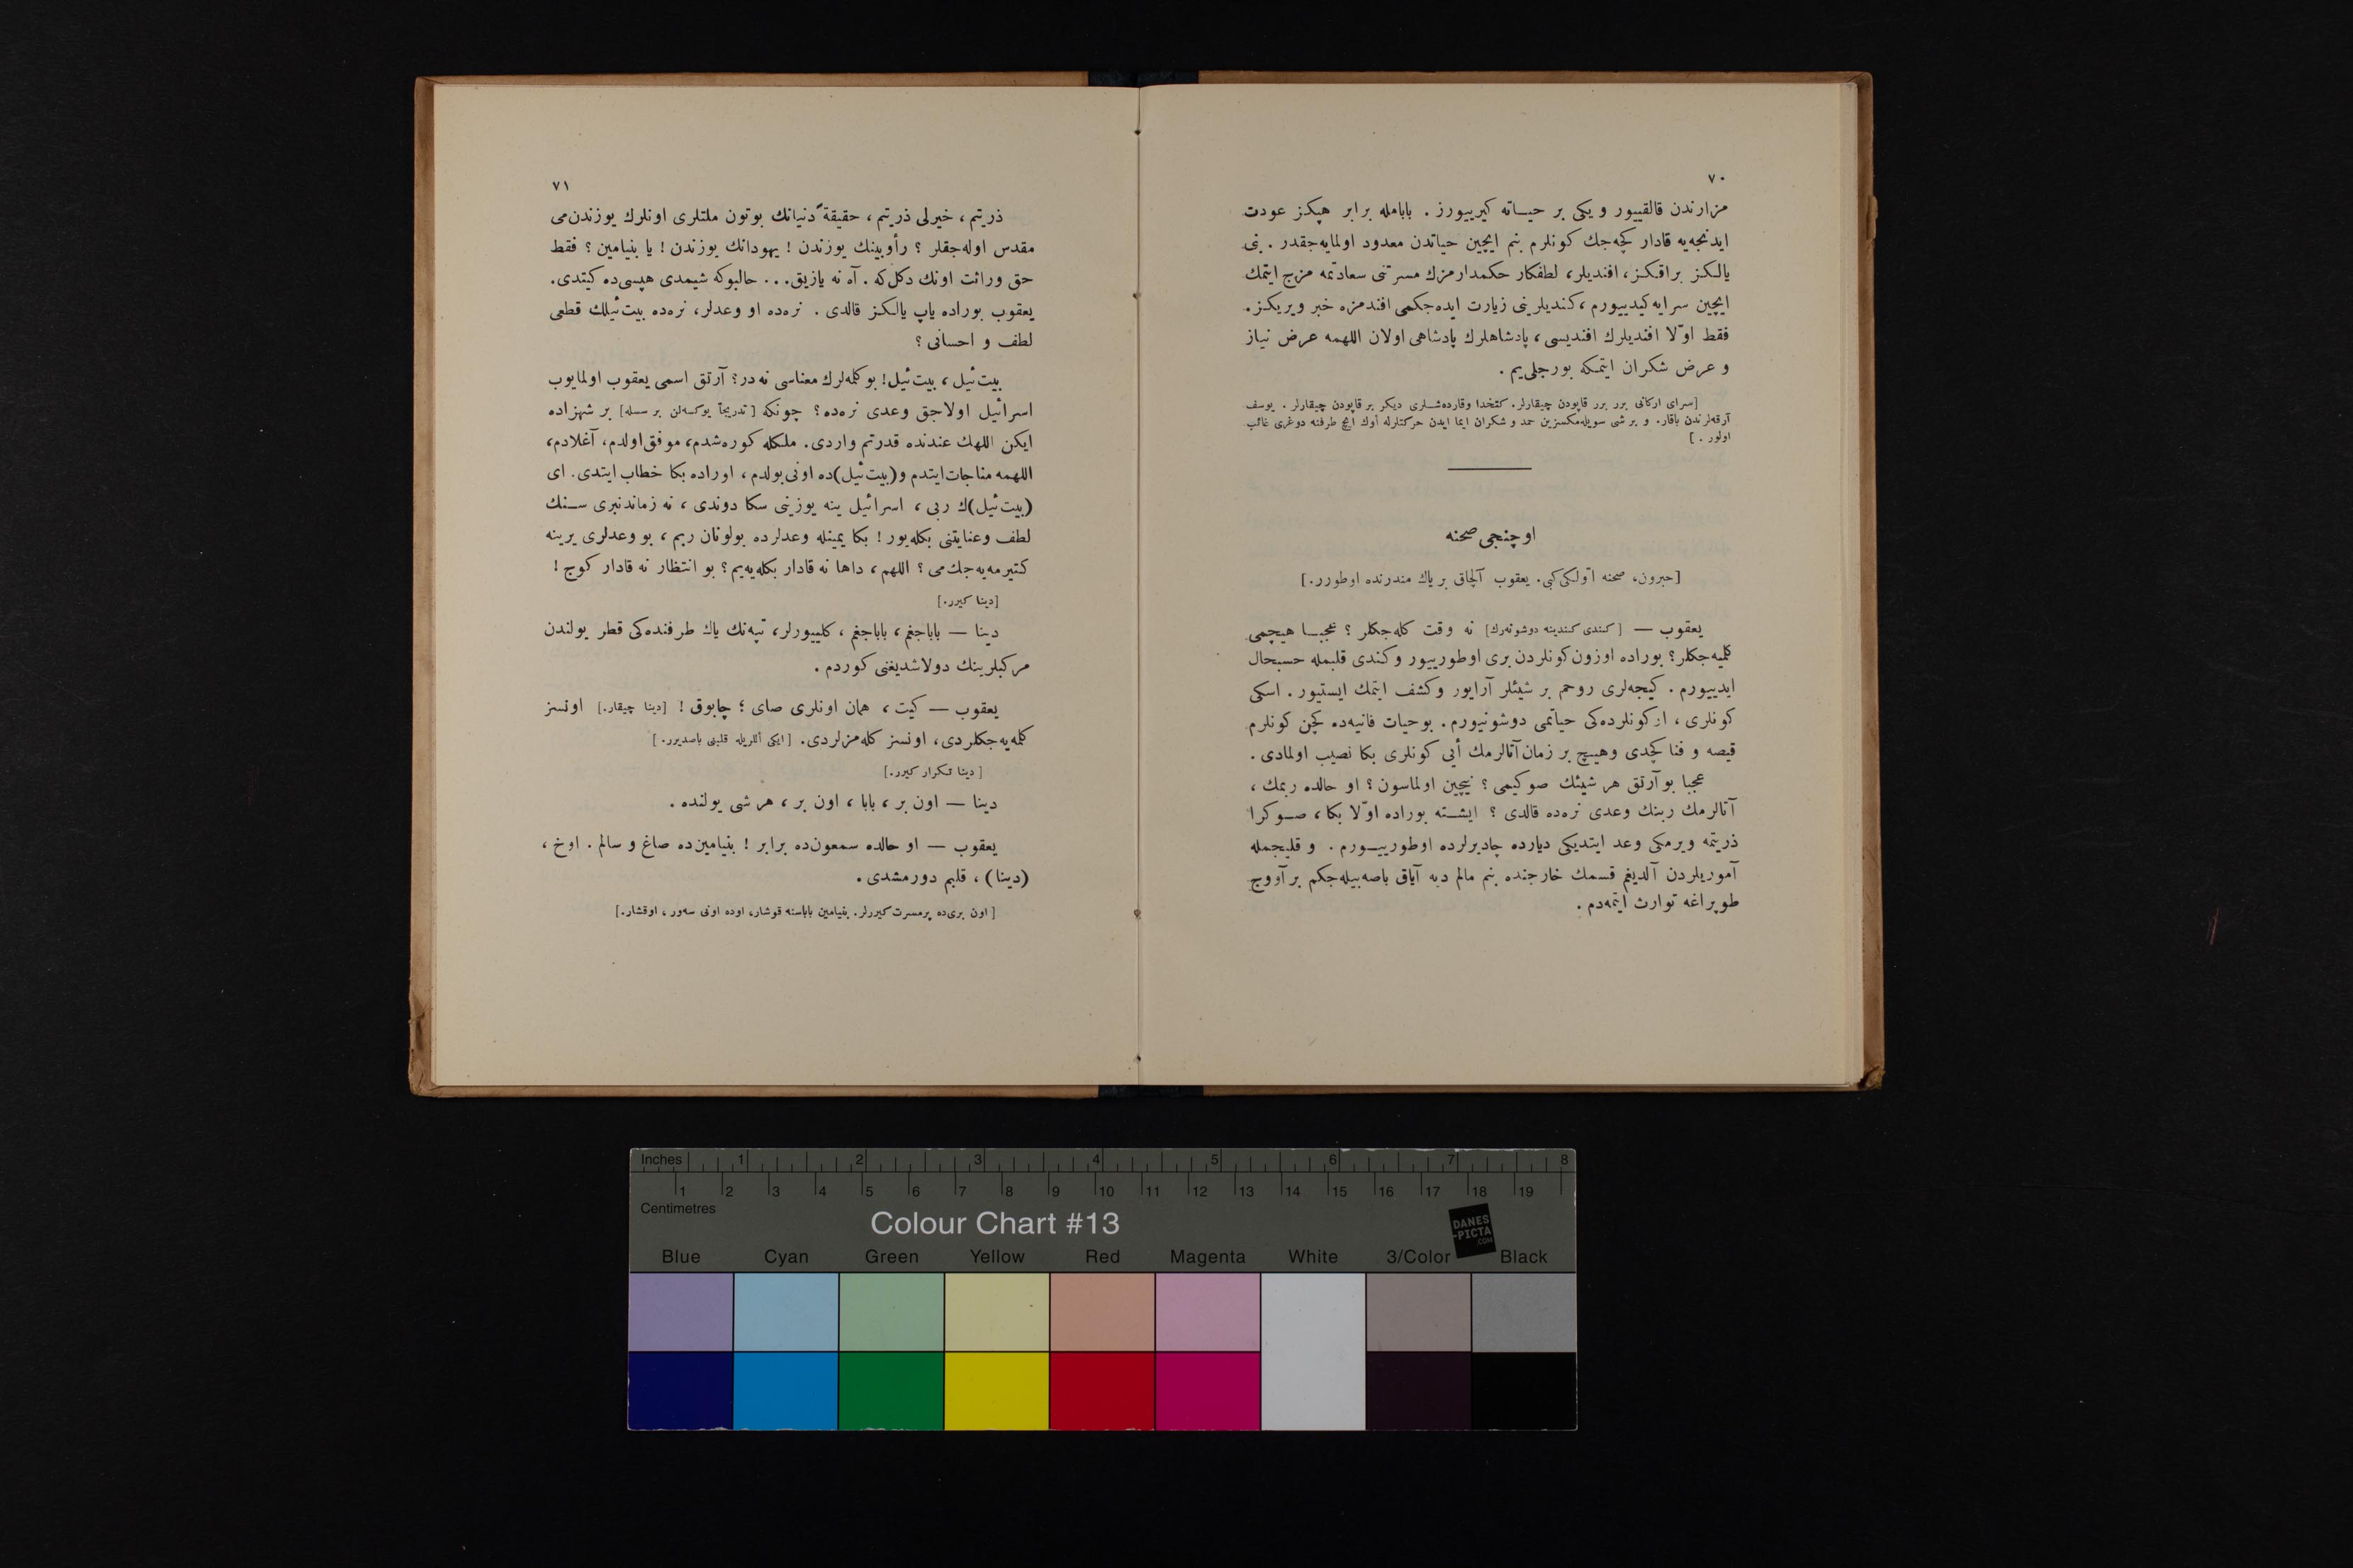 ٧٠
مزارندن قالقييور و يكى بر حياته كيرييورز . باباملە برابر هپكز عودت
ايدنجه‌يه قادار كچه‌جك كونلرم بنم ايچين حياتدن معدود اولمايه‌جقدر . بنى
يالكز براقكز، افنديلر، لطفكار حكمدارمزك مسرتنى سعادتمه مزج ايتمك
ايچين سرايه كيدييورم ، كنديلرينى زيارت ايده‌جكمى افندمزه خبر ويريكز .
فقط اوّلا افنديلرك افنديسى ، پادشاهلرك پادشاهى اولان اللهمه عرض نياز
و عرض شكران ايتمكه بورجلى‌يم .
[سراى اركانى برر برر قاپودن چيقارلر. كتخدا وقارده‌شلرى ديكر بر قاپودن چيقارلر . يوسف
آرقه‌لرندن باقار. و بر شى سويله‌مكسزين حمد و شكران ايما ايدن حركتلرله اوك ايچ طرفنه دوغرى غائب
اولور . ]
اوچنجى صحنه
[حبرون، صحنه اوّلكى كبى. يعقوب آلچاق بر ياك مندرنده اوطورر.]
يعقوب — [كندى كندينه دوشونه‌رك] نه وقت كله‌جكلر ؟ عجبا هيچمى
كلميه‌جكلر؟ بوراده اوزون كونلردن برى اوطورييور و كندى قلبمله حسبحال
ايدييورم . كيجه‌لرى روحم بر شيئلر آرايور و كشف ايتمك ايستيور . اسكى
كونلرى ، از كونلرده‌كى حياتمى دوشونيورم . بو حيات فانيه‌ده كچن كونلرم
قيصه و فنا كچدى وهيچ بر زمان آتالرمك أيى كونلرى بكا نصيب اولمادى .
عجبا بو آرتق هر شيئك صوكيمى ؟ نيچين اولماسون ؟ او حالده ربمك ،
آتالرمك ربنك وعدى نره‌ده قالدى ؟ ايشته بوراده اوّلا بكا ، صوكرا
ذريتمه ويرمكى وعد ايتديكى دياره چاديرلرده اوطورييورم . و قليجمله
آموريلردن آلديغم قسمك خارجنده بنم مالم ديه آياق باصه‌بيله‌جكم بر آووج
طوپراغه توارث ايتمه‌دم .
٧١
ذريتم ، خيرلى ذريتم ، حقيقةً دنيانك بوتون ملتلرى اونلرك يوزندن‌مى
مقدس اوله‌جقلر ؟ رأوبينك يوزندن ! يهودانك يوزندن ! يا بنيامين ؟ فقط
حق وراثت اونك دكل كه . آه نه يازيق... حالبوكه شيمدى هپسى‌ده كيتدى.
يعقوب بوراده ياپ يالكز قالدى . نره‌ده او وعدلر، نره‌ده بيت‌ئيلك قطعى
لطف و احسانى ؟
بيت‌ئيل ، بيت‌ئيل! بو كلمه‌لرك معناسى نه‌در؟ آرتق اسمى يعقوب اولمايوب
اسرائيل اولاجق وعدى نره‌ده؟ چونكه [تدريجاً يوكسه‌لن بر سسله] بر شهزاده
ايكن اللهك عندنده قدرتم واردى. ملكله كوره‌شدم، موفق اولدم، آغلادم،
اللهمه مناجات ايتدم و(بيت‌ئيل)ده اونى بولدم ، اوراده بكا خطاب ايتدى. اى
(بيت‌ئيل)ك ربى ، اسرائيل ينه يوزينى سكا دوندى ، نه زماندنبرى سنك
لطف وعنايتنى بكله‌يور ! بكا يمينله وعدلرده بولونان ربم ، بو وعدلرى يرينه
كتيرمه‌يه‌جك‌مى ؟ اللهم ، داها نه قادار بكله‌يه‌يم ؟ بو انتظار نه قادار كوج !
[دينا كيرر.]
دينا — باباجغم ، باباجغم ، كلييورلر، تپه‌نك ياك طرفنده‌كى قطر يولندن
مركبلرينك دولاشديغنى كوردم .
يعقوب — كيت ، همان اونلرى صاى ؛ چابوق ! [دينا چيقار.] اونسز
كلمه‌يه‌جكلردى، اونسز كله‌مزلردى. [ايكى أللريله قلبنى باصديرر. ]
[دينا تكرار كيرر.]
دينا — اون بر ، بابا ، اون بر ، هر شى يولنده .
يعقوب — او حالده سمعون‌ده برابر ! بنيامين‌ده صاغ و سالم . اوخ ،
(دينا) ، قلبم دورمشدى .
[اون برى‌ده پرمسرت كيررلر. بنيامين باباسنه قوشار، اوده اونى سه‌ور ، اوقشار.]
Inches 1 2 3 4 5 6 7 8
1 2 3 4 5 6 7 8 9 10 11 12 13 14 15 16 17 18 19
Centimetres
Colour Chart #13
DANES
-PICTA
.COM
Blue Cyan Green Yellow Red Magenta White 3/Color Black